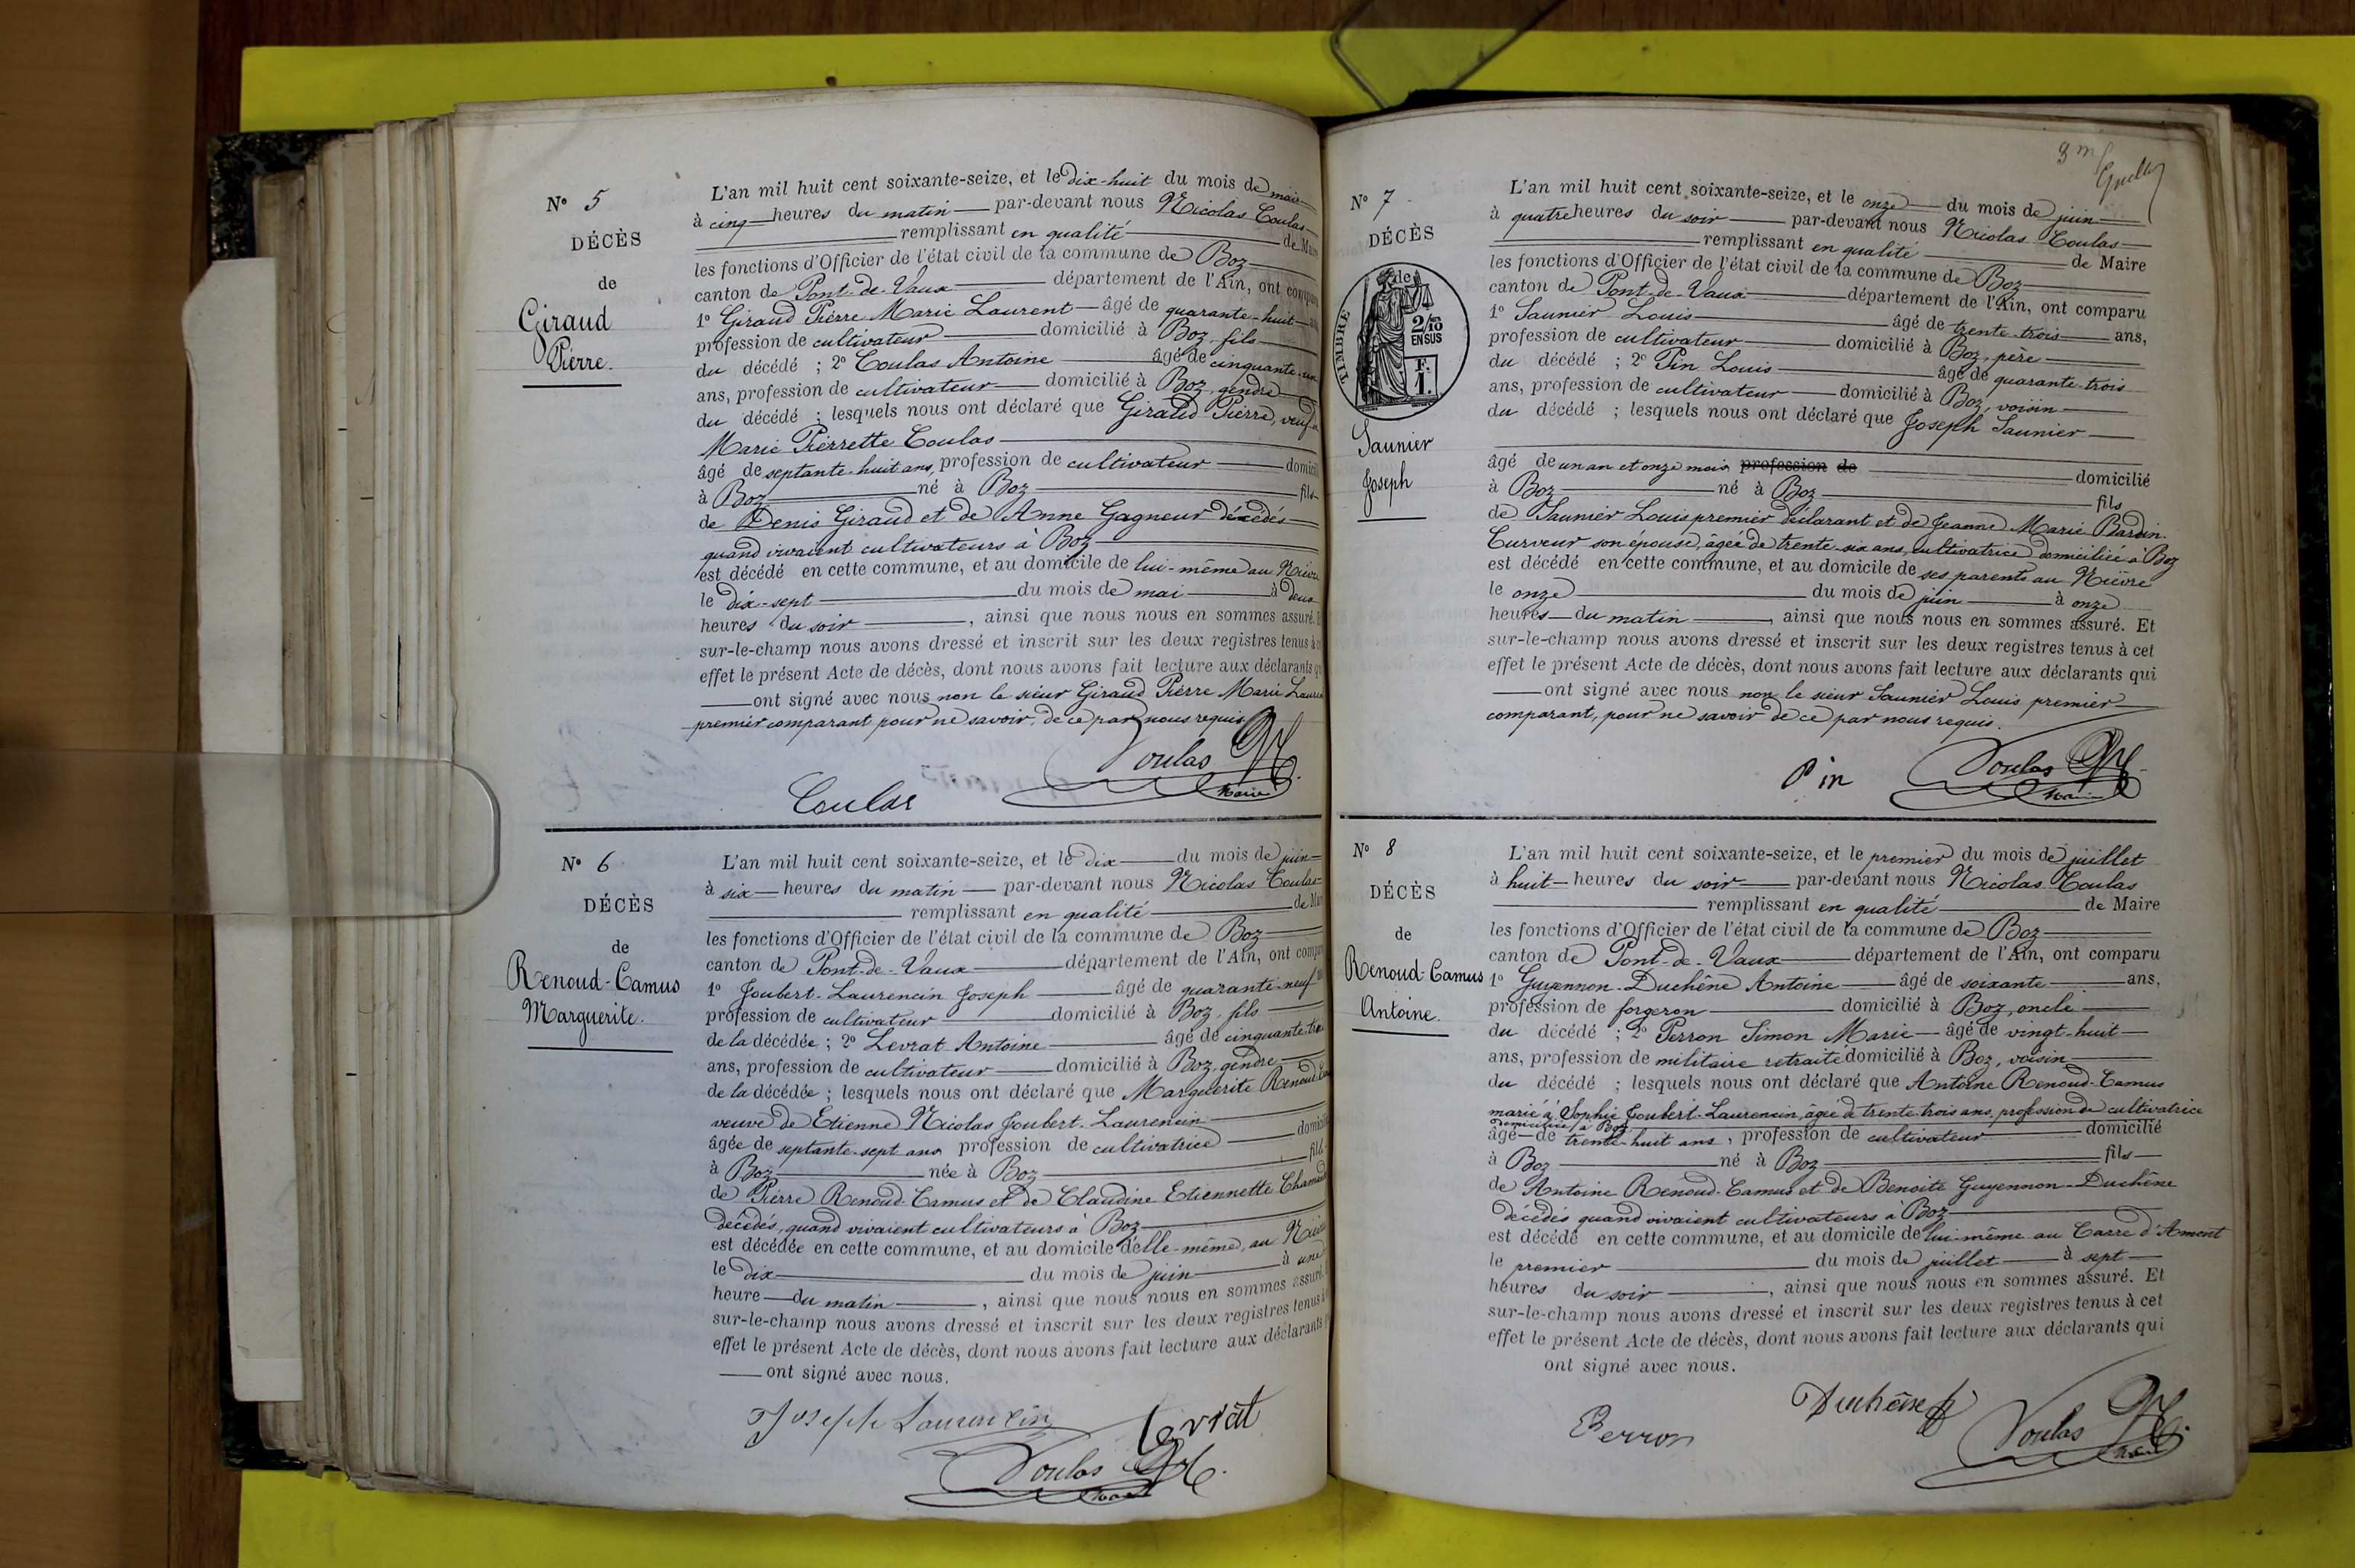 N° 5
DÉCÈS
de
Giraud
Pierre.
L'an mil huit cent soixante-seize, et le dix-huit du mois de mai
à cinq heures du matin par-devant nous Nicolas Coulas
remplissant en qualité de Maire
les fonctions d'Officier de l'état civil de la commune de Boz
canton de Pont-de-Vaux département de l'Ain, ont comparu
1° Giraud Pierre Marie Laurent âgé de quarante-huit
profession de cultivateur domicilié à Boz, fils
du décédé ; 2° Coulas Antoine âgé de cinquante-un
ans, profession de cultivateur domicilié à Boz, gendre
du décédé ; lesquels nous ont déclaré que Giraud Pierre, veuf
Marie Pierrette Coulas
âgé de septante-huit ans, profession de cultivateur domicil
à Boz né à Boz fils
de Denis Giraud et de Anne Gagneur décédés
quand vivaient cultivateurs à Boz
est décédé en cette commune, et au domicile de lui-même au Nièvre
le dix-sept du mois de mai à deux
heures du soir , ainsi que nous nous en sommes assuré.
sur-le-champ nous avons dressé et inscrit sur les deux registres tenus à
effet le présent Acte de décès, dont nous avons fait lecture aux déclarants
ont signé avec nous non le sieur Giraud Pierre Marie Laurent
premier comparant pour ne savoir, de ce par nous requis
Coulas
Coulas
Maire
N° 6
DÉCÈS
de
Renoud-Camus
Marguerite.
L'an mil huit cent soixante-seize, et le dix du mois de juin
à six heures du matin par-devant nous Nicolas Coulas
remplissant en qualité de Mai
les fonctions d'Officier de l'état civil de la commune de Boz
canton de Pont-de-Vaux département de l'Ain, ont compar
1° Joubert-Laurencin Joseph âgé de quarante-neuf
profession de cultivateur domicilié à Boz, fils
de la décédée ; 2° Levrat Antoine âgé de cinquante-trois
ans, profession de cultivateur domicilié à Boz, gendre
de la décédée ; lesquels nous ont déclaré que Marguerite Renoud-Camus
veuve de Etienne Nicolas Joubert-Laurencin
âgée de septante-sept ans, profession de cultivatrice domicili
à Boz née à Boz fill
de Pierre Renoud-Camus et de Claudine Etiennette
décédés, quand vivaient cultivateurs à Boz
est décédée en cette commune, et au domicile d'elle-même, au Nièvre
le dix du mois de juin à une
heure du matin , ainsi que nous nous en sommes assuré.
sur-le-champ nous avons dressé et inscrit sur les deux registres tenus à
effet le présent Acte de décès, dont nous avons fait lecture aux déclarants
ont signé avec nous.
Joseph Laurencin
Levrat
Coulas
Maire
N° 7
DÉCÈS
de
TIMBRE
2/10
EN SUS
F.
1.
Saunier
Joseph
L'an mil huit cent soixante-seize, et le onze du mois de juin
à quatre heures du soir par-devant nous Nicolas Coulas
remplissant en qualité de Maire
les fonctions d'Officier de l'état civil de la commune de Boz
canton de Pont-de-Vaux département de l'Ain, ont comparu
1° Saunier Louis âgé de trente-trois ans,
profession de cultivateur domicilié à Boz, père
du décédé ; 2° Pin Louis âgé de quarante-trois
ans, profession de cultivateur domicilié à Boz, voisin
du décédé ; lesquels nous ont déclaré que Joseph Saunier
âgé de un an et onze mois profession de domicilié
à Boz né à Boz fils
de Saunier Louis premier déclarant et de Jeanne Marie Bardin-
Curveur son épouse, âgée de trente-six ans, cultivatrice domiciliée à Boz
est décédé en cette commune, et au domicile de ses parents au Nièvre
le onze du mois de juin à onze
heures du matin , ainsi que nous nous en sommes assuré. Et
sur-le-champ nous avons dressé et inscrit sur les deux registres tenus à cet
effet le présent Acte de décès, dont nous avons fait lecture aux déclarants qui
ont signé avec nous non le sieur Saunier Louis premier
comparant, pour ne savoir de ce par nous requis.
Pin
Coulas
Maire
N° 8
DÉCÈS
de
Renoud-Camus
Antoine.
L'an mil huit cent soixante-seize, et le premier du mois de juillet
à huit heures du soir par-devant nous Nicolas Coulas
remplissant en qualité de Maire
les fonctions d'Officier de l'état civil de la commune de Boz
canton de Pont-de-Vaux département de l'Ain, ont comparu
1° Guyennon-Duchêne Antoine âgé de soixante ans,
profession de forgeron domicilié à Boz, oncle
du décédé ; 2° Perron Simon Marie âgé de vingt-huit
ans, profession de militaire retraité domicilié à Boz, voisin
du décédé ; lesquels nous ont déclaré que Antoine Renoud-Camus
marié à Sophie Joubert-Laurencin, âgée de trente-trois ans, profession de cultivatrice
domiciliée à Boz
âgé de trente-huit ans, profession de cultivateur domicilié
à Boz né à Boz fils
de Antoine Renoud-Camus et de Benoite Guyennon-Duchêne
décédés quand vivaient cultivateurs à Boz
est décédé en cette commune, et au domicile de lui-même au Carre d'Amont
le premier du mois de juillet à sept
heures du soir , ainsi que nous nous en sommes assuré. Et
sur-le-champ nous avons dressé et inscrit sur les deux registres tenus à cet
effet le présent Acte de décès, dont nous avons fait lecture aux déclarants qui
ont signé avec nous.
Perron
Duchêne
Coulas
Maire